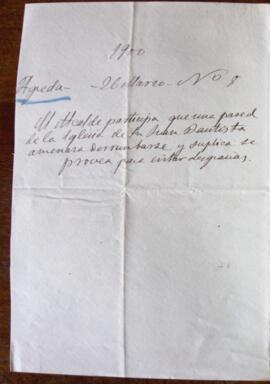 1900
Agreda - 26 Marzo - No 8
El Alcalde participa que una pared
de la Iglesia de Sn Juan Bautista
amenaza derrumbarse y suplica se
provea para evitar desgracias.